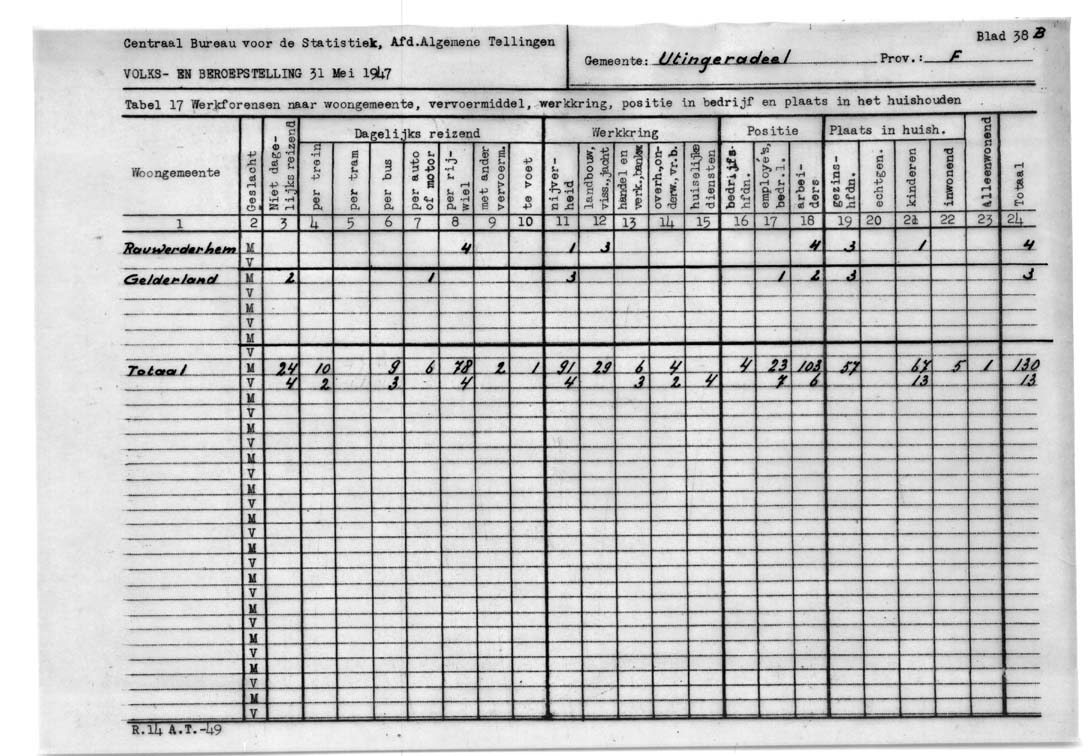 Centraal Bureau voor de Statistiek, Afd.Algemene Tellingen
VOLKS- EN BEROEPSTELLING 31 Mei 1947
Gemeente: Utingeradeel Prov.: F
Blad 38 B
Tabel 17 Werkforensen naar woongemeente, vervoermiddel, werkkring, positie in bedrijf en plaats in het huishouden
Woongemeente Geslacht Niet dage-lijks reizend Dagelijks reizend Werkkring Positie Plaats in huish. Alleenwonend Totaal
per trein per tram per bus per auto of motor per rij-wiel met ander vervoerm. te voet nijver-heid landbouw, viss.,jacht handel en verk.,bankw. overh.,on-derw.,vr.b. huiselijke diensten bedrijfs-hfdn. employé's, bedr.l. arbei-ders gezins-hfdn. echtgen. kinderen inwonend
1 2 3 4 5 6 7 8 9 10 11 12 13 14 15 16 17 18 19 20 21 22 23 24
Rauwerderhem M 4 1 3 4 3 1 4
V
Gelderland M 2 1 3 1 2 3 3
V
M
V
M
V
Totaal M 24 10 9 6 78 2 1 91 29 6 4 4 23 103 57 67 5 1 130
V 4 2 3 4 4 3 2 4 7 6 13 13
M
V
M
V
M
V
M
V
M
V
M
V
M
V
M
V
M
V
M
V
M
V
R.14 A.T.-49